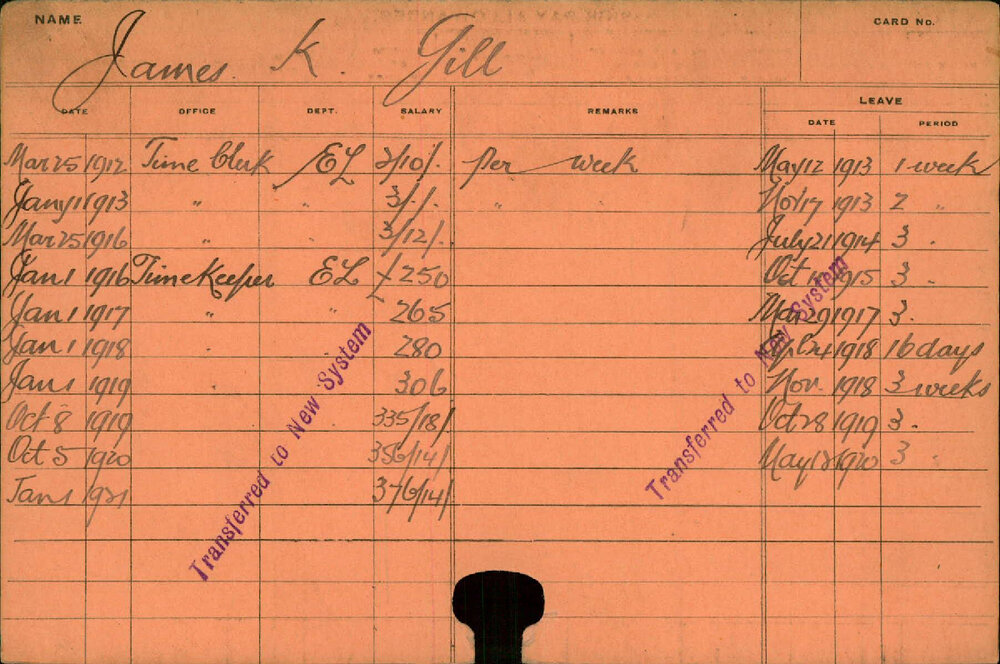 NAME CARD No.
James K. Gill
DATE OFFICE DEPT. SALARY REMARKS LEAVE
DATE PERIOD
Mar 25 1912 Time Clerk EL 2/10/- per week May 12 1913 1 week
Jany 1 1913 " " 3/-/- " " Nov 17 1913 2 "
Mar 25 1916 " 3/12/- July 21 1914 3 "
Jan 1 1916 Time Keeper EL £250 Oct 1915 3 "
Jan 1 1917 " " 265 Mar 29 1917 3 "
Jan 1 1918 " 280 Apl 24 1918 16 days
Jan 1 1919 " 306 Nov 1918 3 weeks
Oct 8 1919 335/18/- Oct 28 1919 3 "
Oct 5 1920 356/14/- May 1920 3 "
Jan 1 1921 376/14/-
Transferred to New System
Transferred to New System